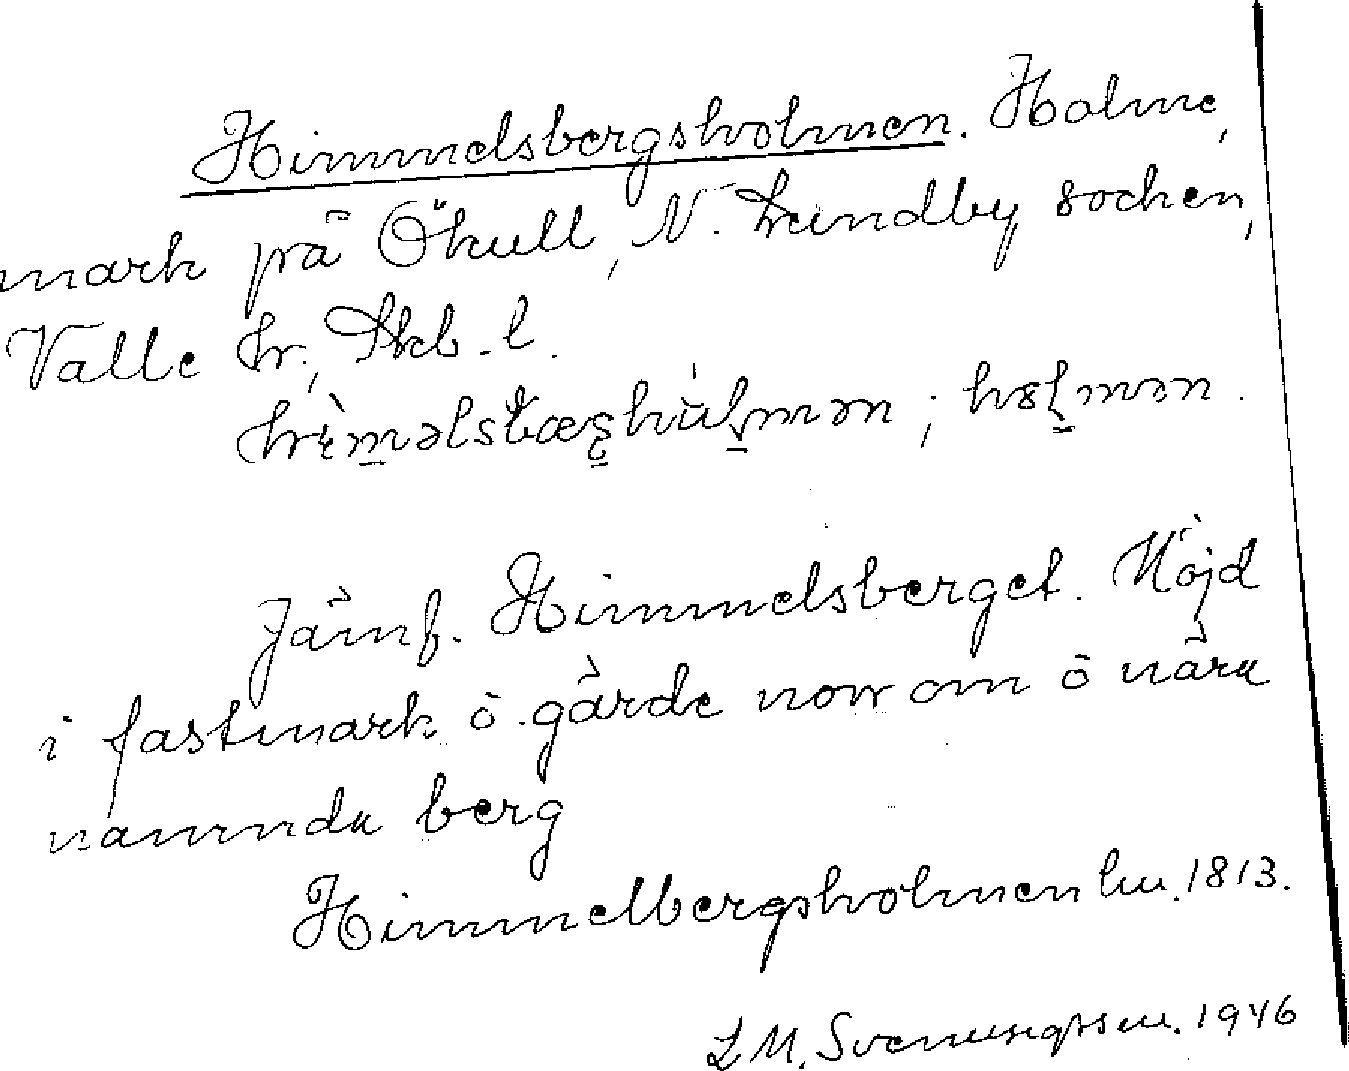 Himmelsbergsholmen. Holme,
mark på Ökull, N. Lundby socken,
Valle hr., Skb. l.
hìməlsbæshùlmən; holmən.
Jämf. Himmelsberget. Höjd
i fastmark ö. gärde norr om o nära
nämnda berg
Himmelbergsholmen lm. 1813.
L M. Svenungsson. 1946